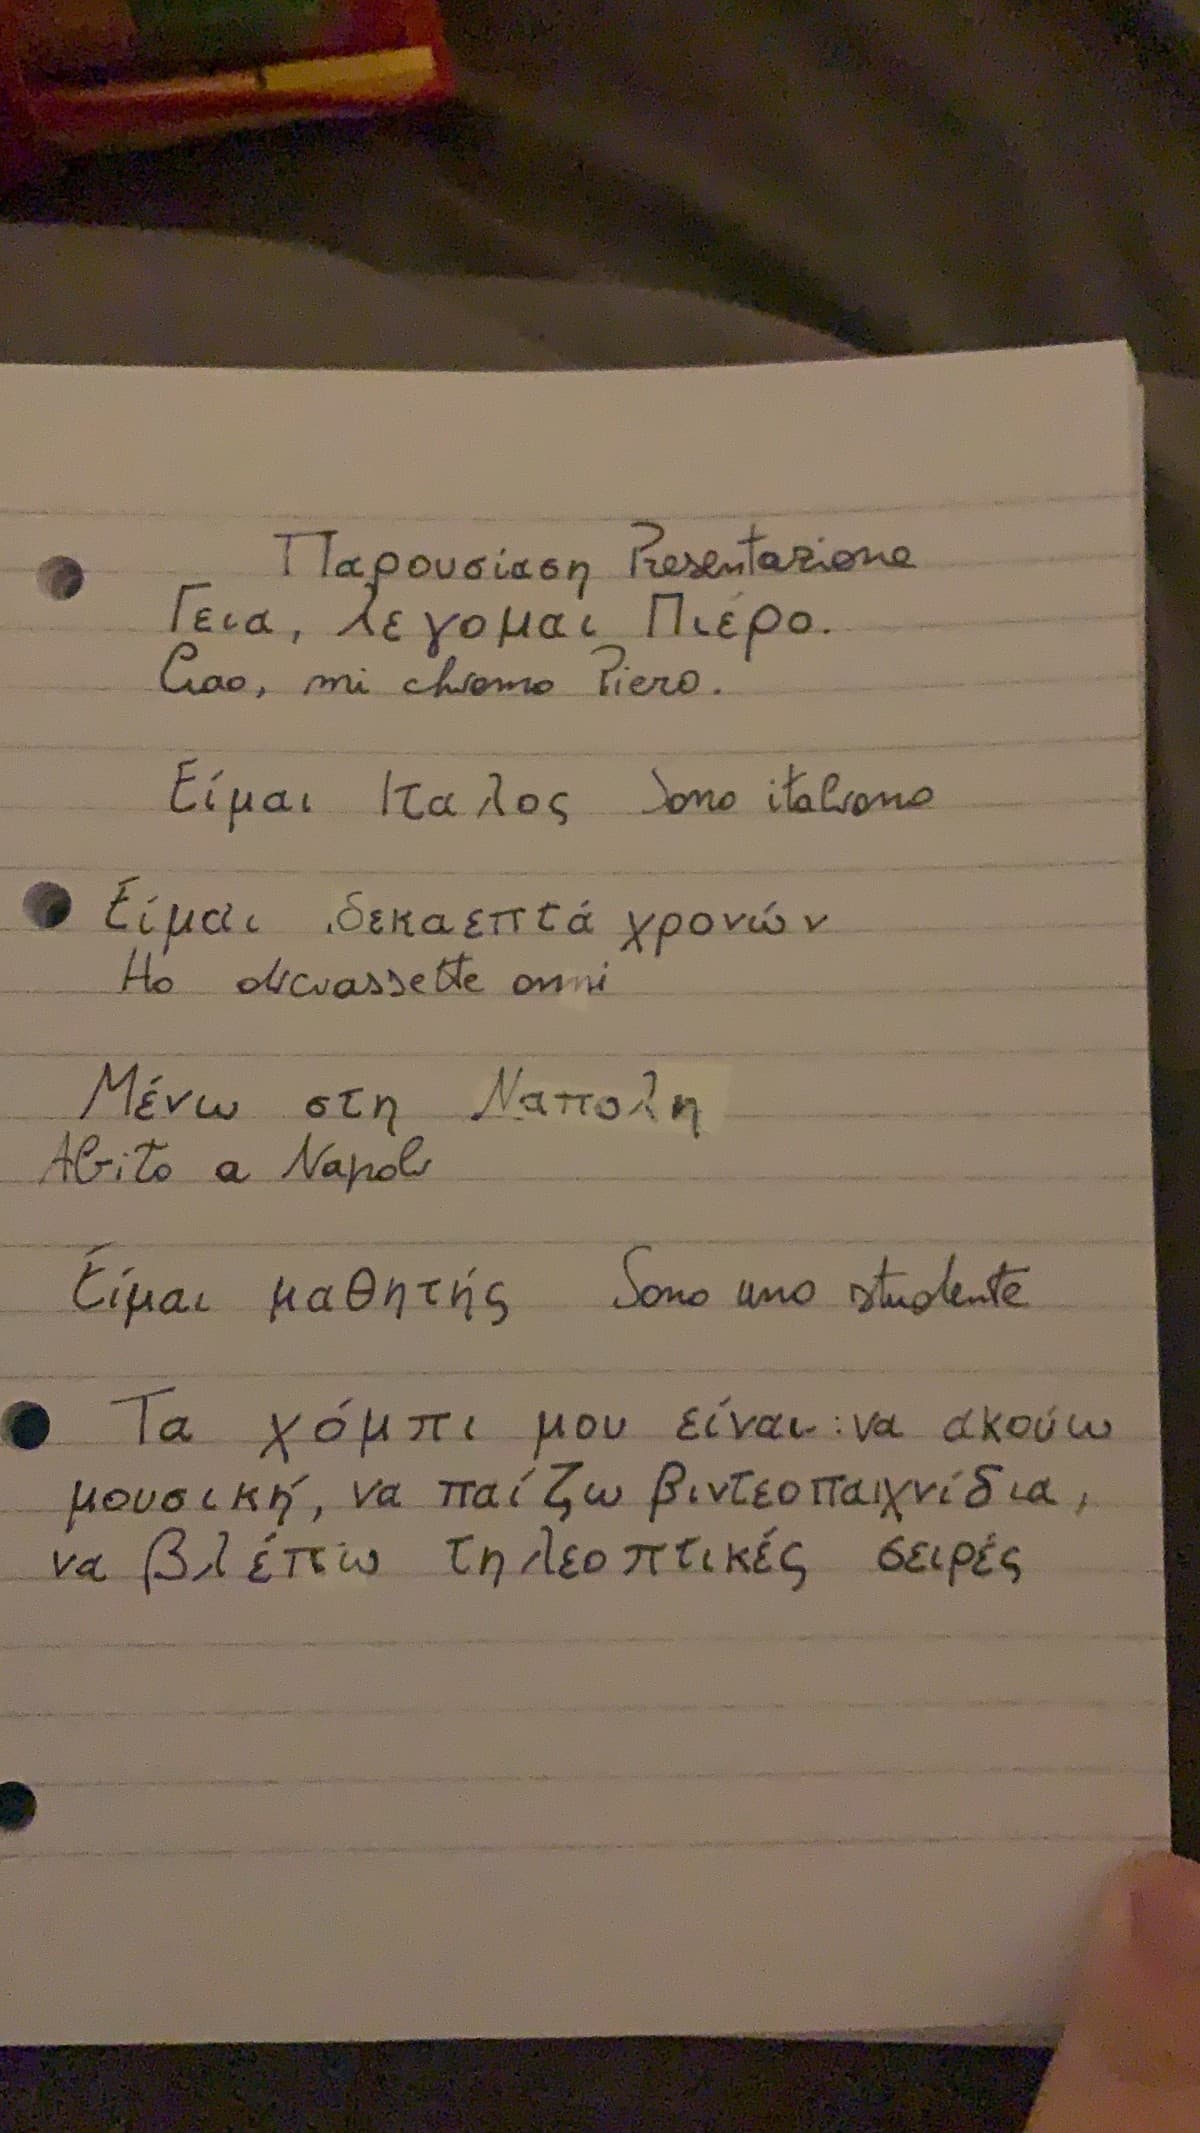 Παρουσίαση Presentazione
Γεια, λεγομαι Πιέρο.
Ciao, mi chiamo Piero.
Είμαι Ιταλος Sono italiano
Είμαι δεκαεπτά χρονών
Ho diciassette anni
Μένω στη Ναπολη
Abito a Napoli
Είμαι μαθητής Sono uno studente
Τα χόμπι μου είναι: να ακούω
μουσική, να παίζω βιντεοπαιχνίδια,
να βλέπω τηλεοπτικές σειρές